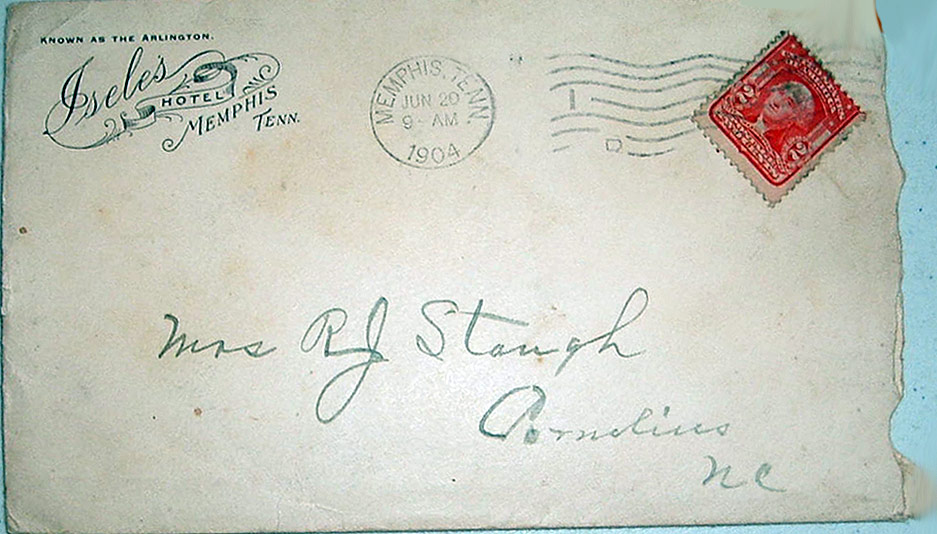 KNOWN AS THE ARLINGTON.
Isele's
HOTEL
MEMPHIS
TENN.
MEMPHIS, TENN.
JUN 20
9- AM
1904
1
D
2 2
Mrs R J Stough
Cornelius
NC